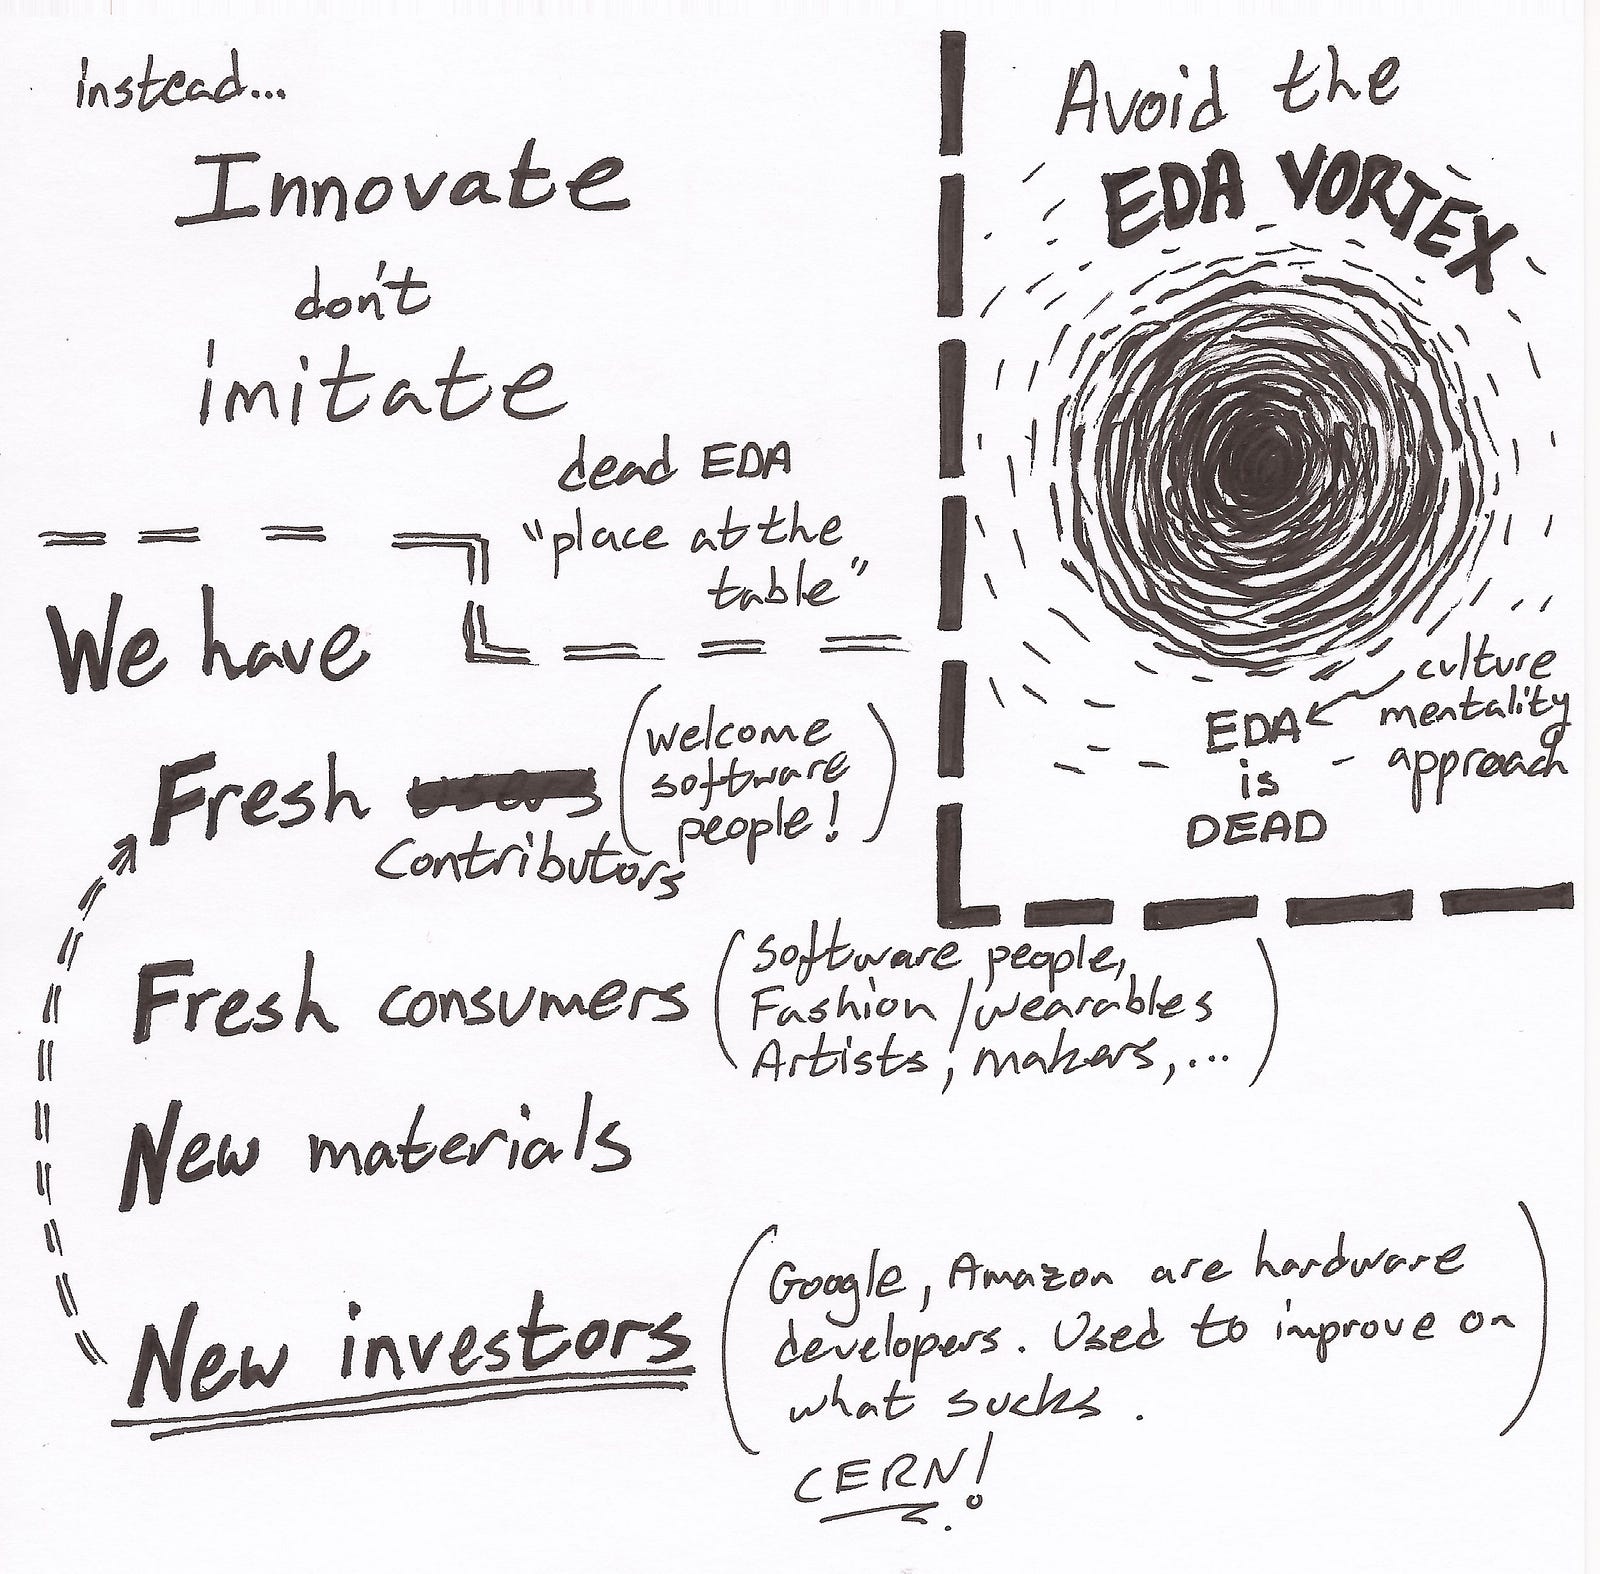 instead...
Innovate
don't
imitate
dead EDA
"place at the
table"
Avoid the
EDA VORTEX
culture
mentality
approach
EDA
is
DEAD
We have
Fresh users
Contributors
(welcome
software
people!)
Fresh consumers
(Software people,
Fashion/wearables
Artists, makers,...)
New materials
New investors
(Google, Amazon are hardware
developers. Used to improve on
what sucks.)
CERN!